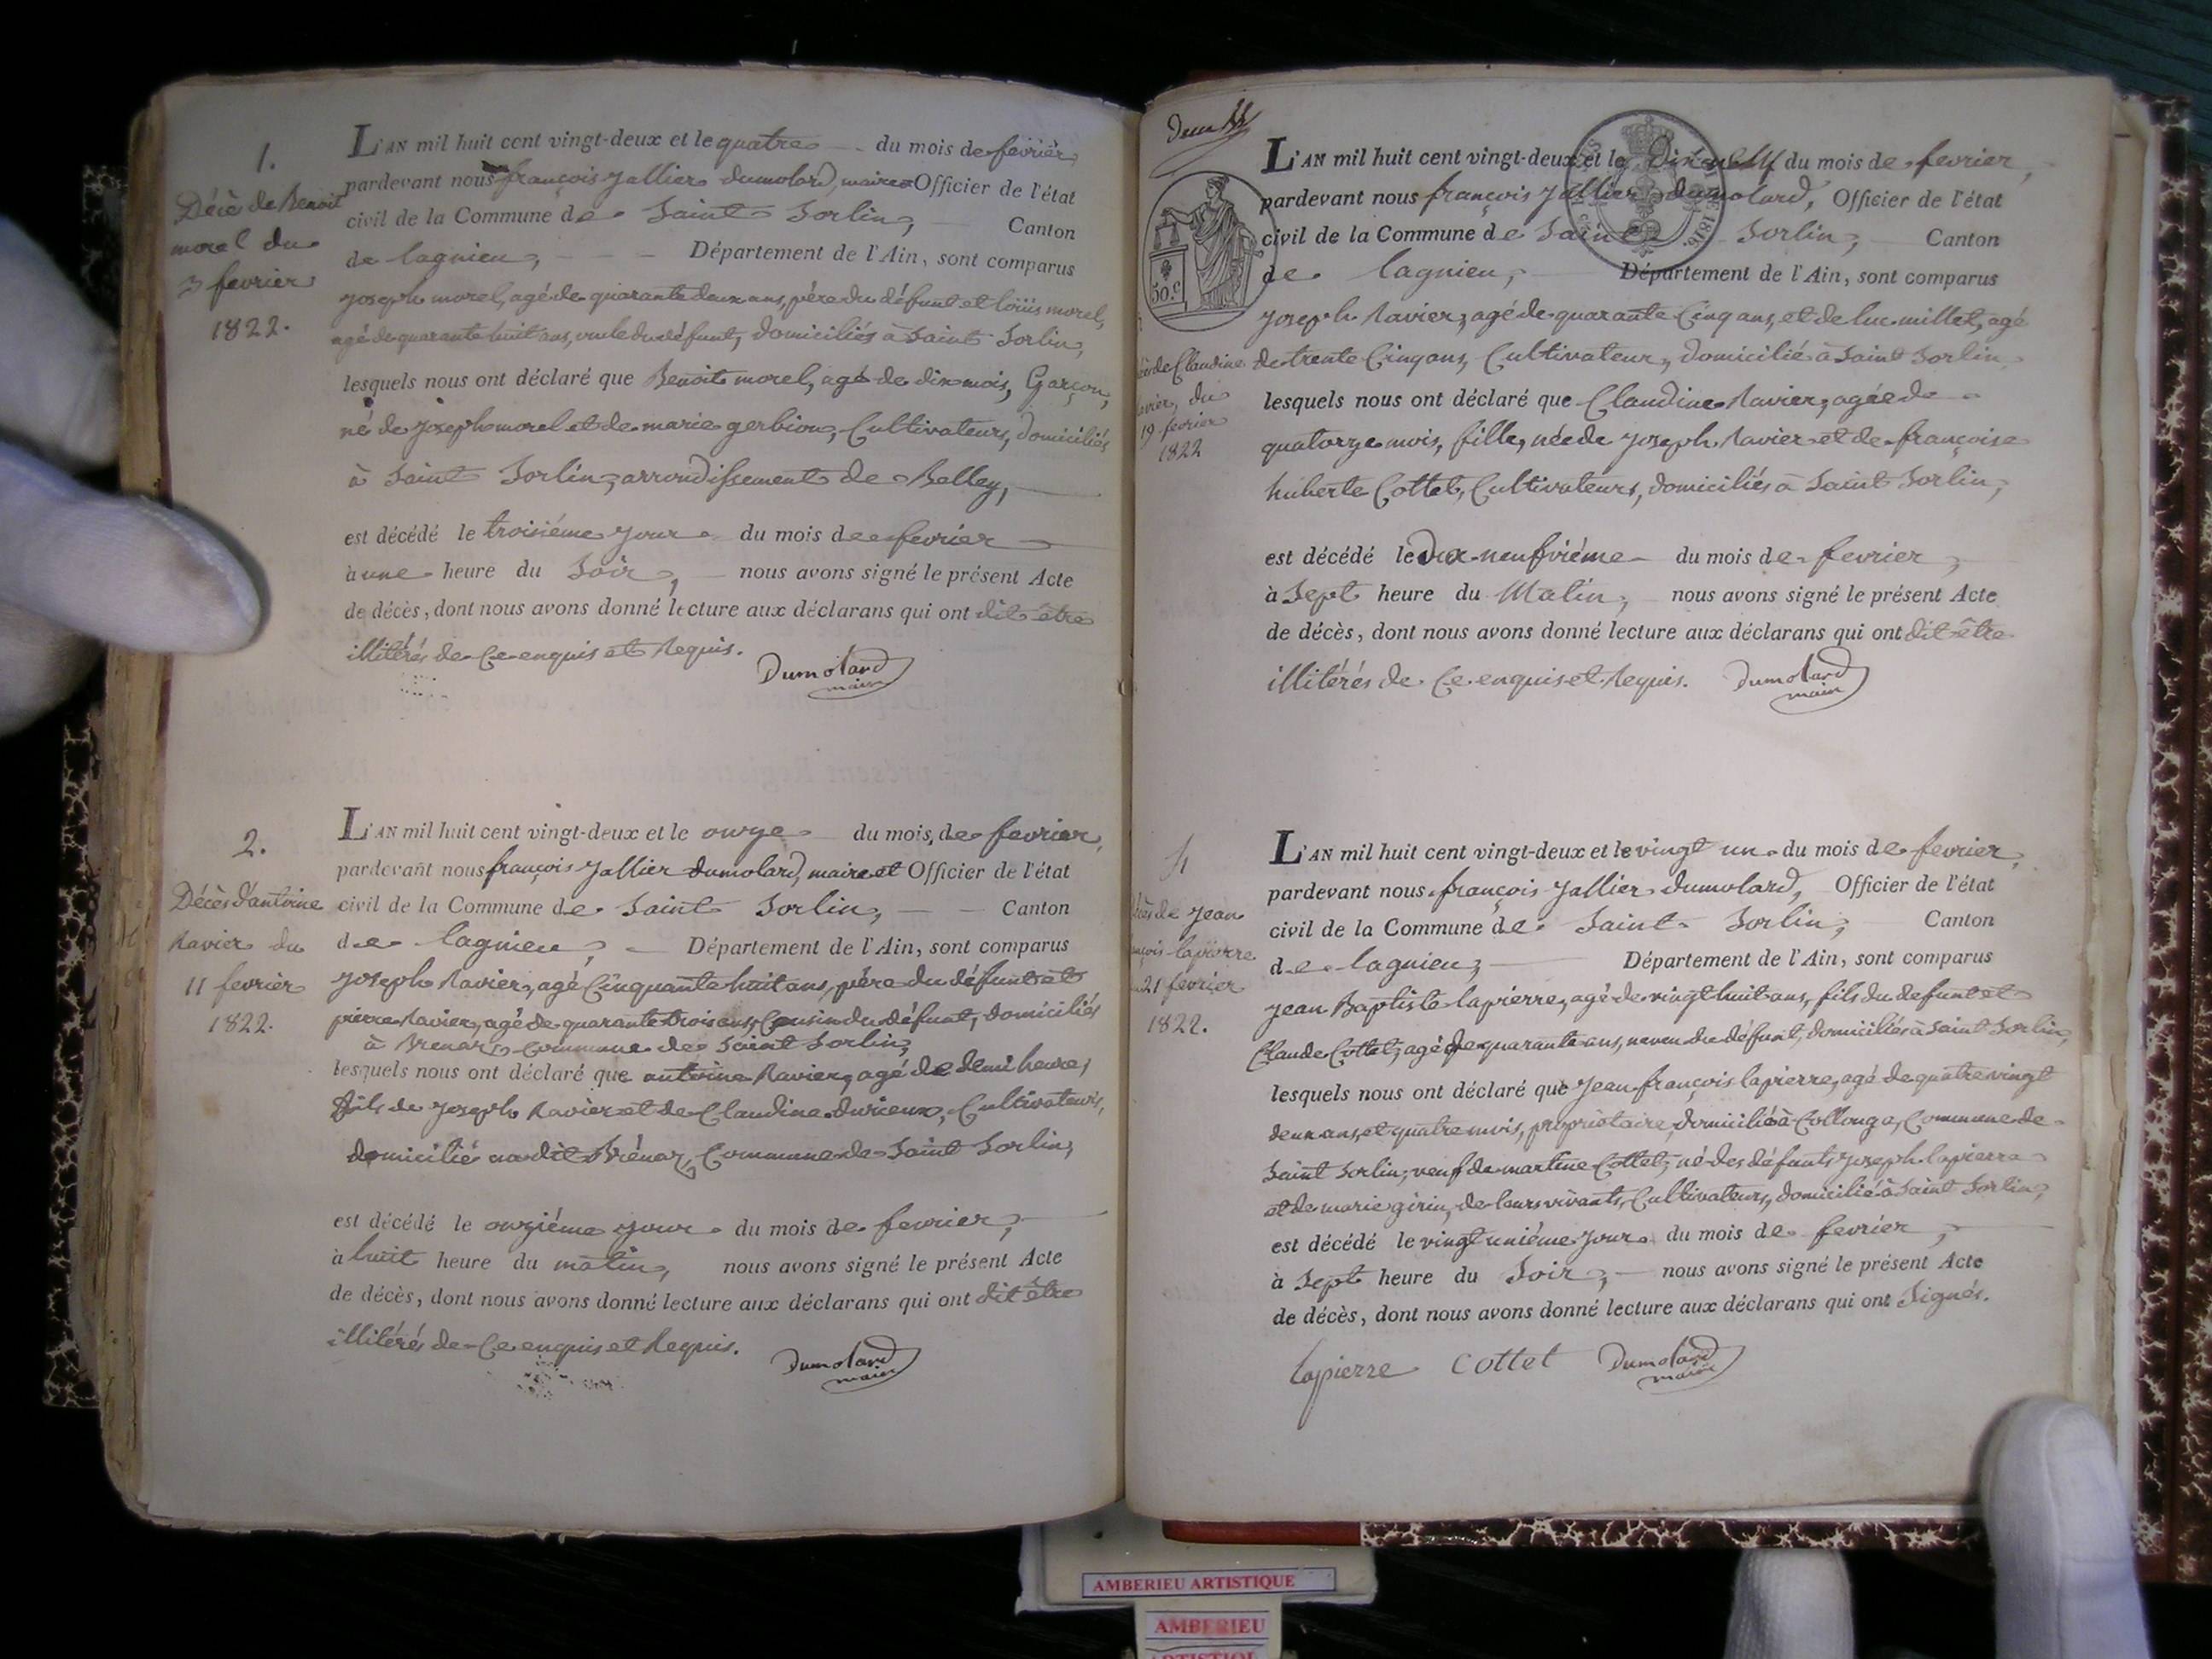 1.
Décès de Benoit
morel du
3 fevrier
1822.
L'AN mil huit cent vingt-deux et le quatre du mois de fevrier,
pardevant nous françois Jallier dumolard, maire Officier de l'état
civil de la Commune de Saint Sorlin, Canton
de lagnieu, Département de l'Ain, sont comparus
joseph morel, agé de quarante deux ans, pére du défunt et loüis morel,
agé de quarante huit ans, oncle du défunt, domiciliés à Saint Sorlin,
lesquels nous ont déclaré que Benoit morel, agé de dix mois, Garçon,
né de joseph morel et de marie gerbion, Cultivateurs, domiciliés
à Saint Sorlin, arrondissement de Belley,
est décédé le troisiéme jour du mois de fevrier
à une heure du Soir, nous avons signé le présent Acte
de décès, dont nous avons donné lecture aux déclarans qui ont dit être
illitérés de Ce enquis et Requis.
Dumolard
maire
2.
Décès d'antoine
Ravier du
11 fevrier
1822.
L'AN mil huit cent vingt-deux et le onze du mois, de fevrier,
pardevant nous françois Jallier dumolard, maire et Officier de l'état
civil de la Commune de Saint Sorlin, Canton
de lagnieu, Département de l'Ain, sont comparus
joseph Ravier, agé Cinquante huit ans, pére du défunt et
pierre Ravier, agé de quarante trois ans, Cousin du défunt, domiciliés
à Brenaz Commune de Saint Sorlin,
lesquels nous ont déclaré que antoine Ravier, agé de demi heures
fils de joseph Ravier et de Claudine durieux, Cultivateurs,
domicilié au dit Brénaz, Commune de Saint Sorlin,
est décédé le onziéme jour du mois de fevrier,
à huit heure du matin, nous avons signé le présent Acte
de décès, dont nous avons donné lecture aux déclarans qui ont dit être
illitérés de Ce enquis et Requis.
Dumolard
maire
50.c
1816.
de Claudine
avier, du
19 fevrier
1822
L'AN mil huit cent vingt-deux et le Dixneuf du mois de fevrier,
pardevant nous françois Jallier dumolard, Officier de l'état
civil de la Commune de Saint Sorlin, Canton
de lagnieu, Département de l'Ain, sont comparus
joseph Ravier, agé de quarante Cinq ans, et de luc millet, agé
de trente Cinq ans, Cultivateur, domicilié à Saint Sorlin,
lesquels nous ont déclaré que Claudine Ravier, agée de
quatorze mois, fille, née de joseph Ravier et de françoise
huberte Cottet, Cultivateurs, domiciliés à Saint Sorlin,
est décédé le Dix-neufviéme du mois de fevrier,
à Sept heure du Matin, nous avons signé le présent Acte
de décès, dont nous avons donné lecture aux déclarans qui ont dit être
illitérés de Ce enquis et Requis.
Dumolard
maire
4
de jean
nçois lapierre
21 fevrier
1822.
L'AN mil huit cent vingt-deux et le vingt un du mois de fevrier,
pardevant nous françois Jallier dumolard, Officier de l'état
civil de la Commune de Saint Sorlin, Canton
de lagnieu, Département de l'Ain, sont comparus
jean Baptiste lapierre, agé de vingt huit ans, fils du defunt et
Claude Cottet, agé de quarante ans, neveu du défunt, domiciliés à Saint Sorlin,
lesquels nous ont déclaré que jean françois lapierre, agé de quatre vingt
deux ans, et quatre mois, propriétaire, domicilié à Collonge, Commune de
Saint Sorlin, veuf de martine Cottet, né des défunts joseph lapierre
et de marie girin, de leurs vivants, Cultivateurs, domicilié à Saint Sorlin,
est décédé le vingt uniéme jour du mois de fevrier,
à Sept heure du Soir, nous avons signé le présent Acte
de décès, dont nous avons donné lecture aux déclarans qui ont Signés.
lapierre Cottet Dumolard
maire
AMBERIEU ARTISTIQUE
AMBERIEU
ARTISTIQUE